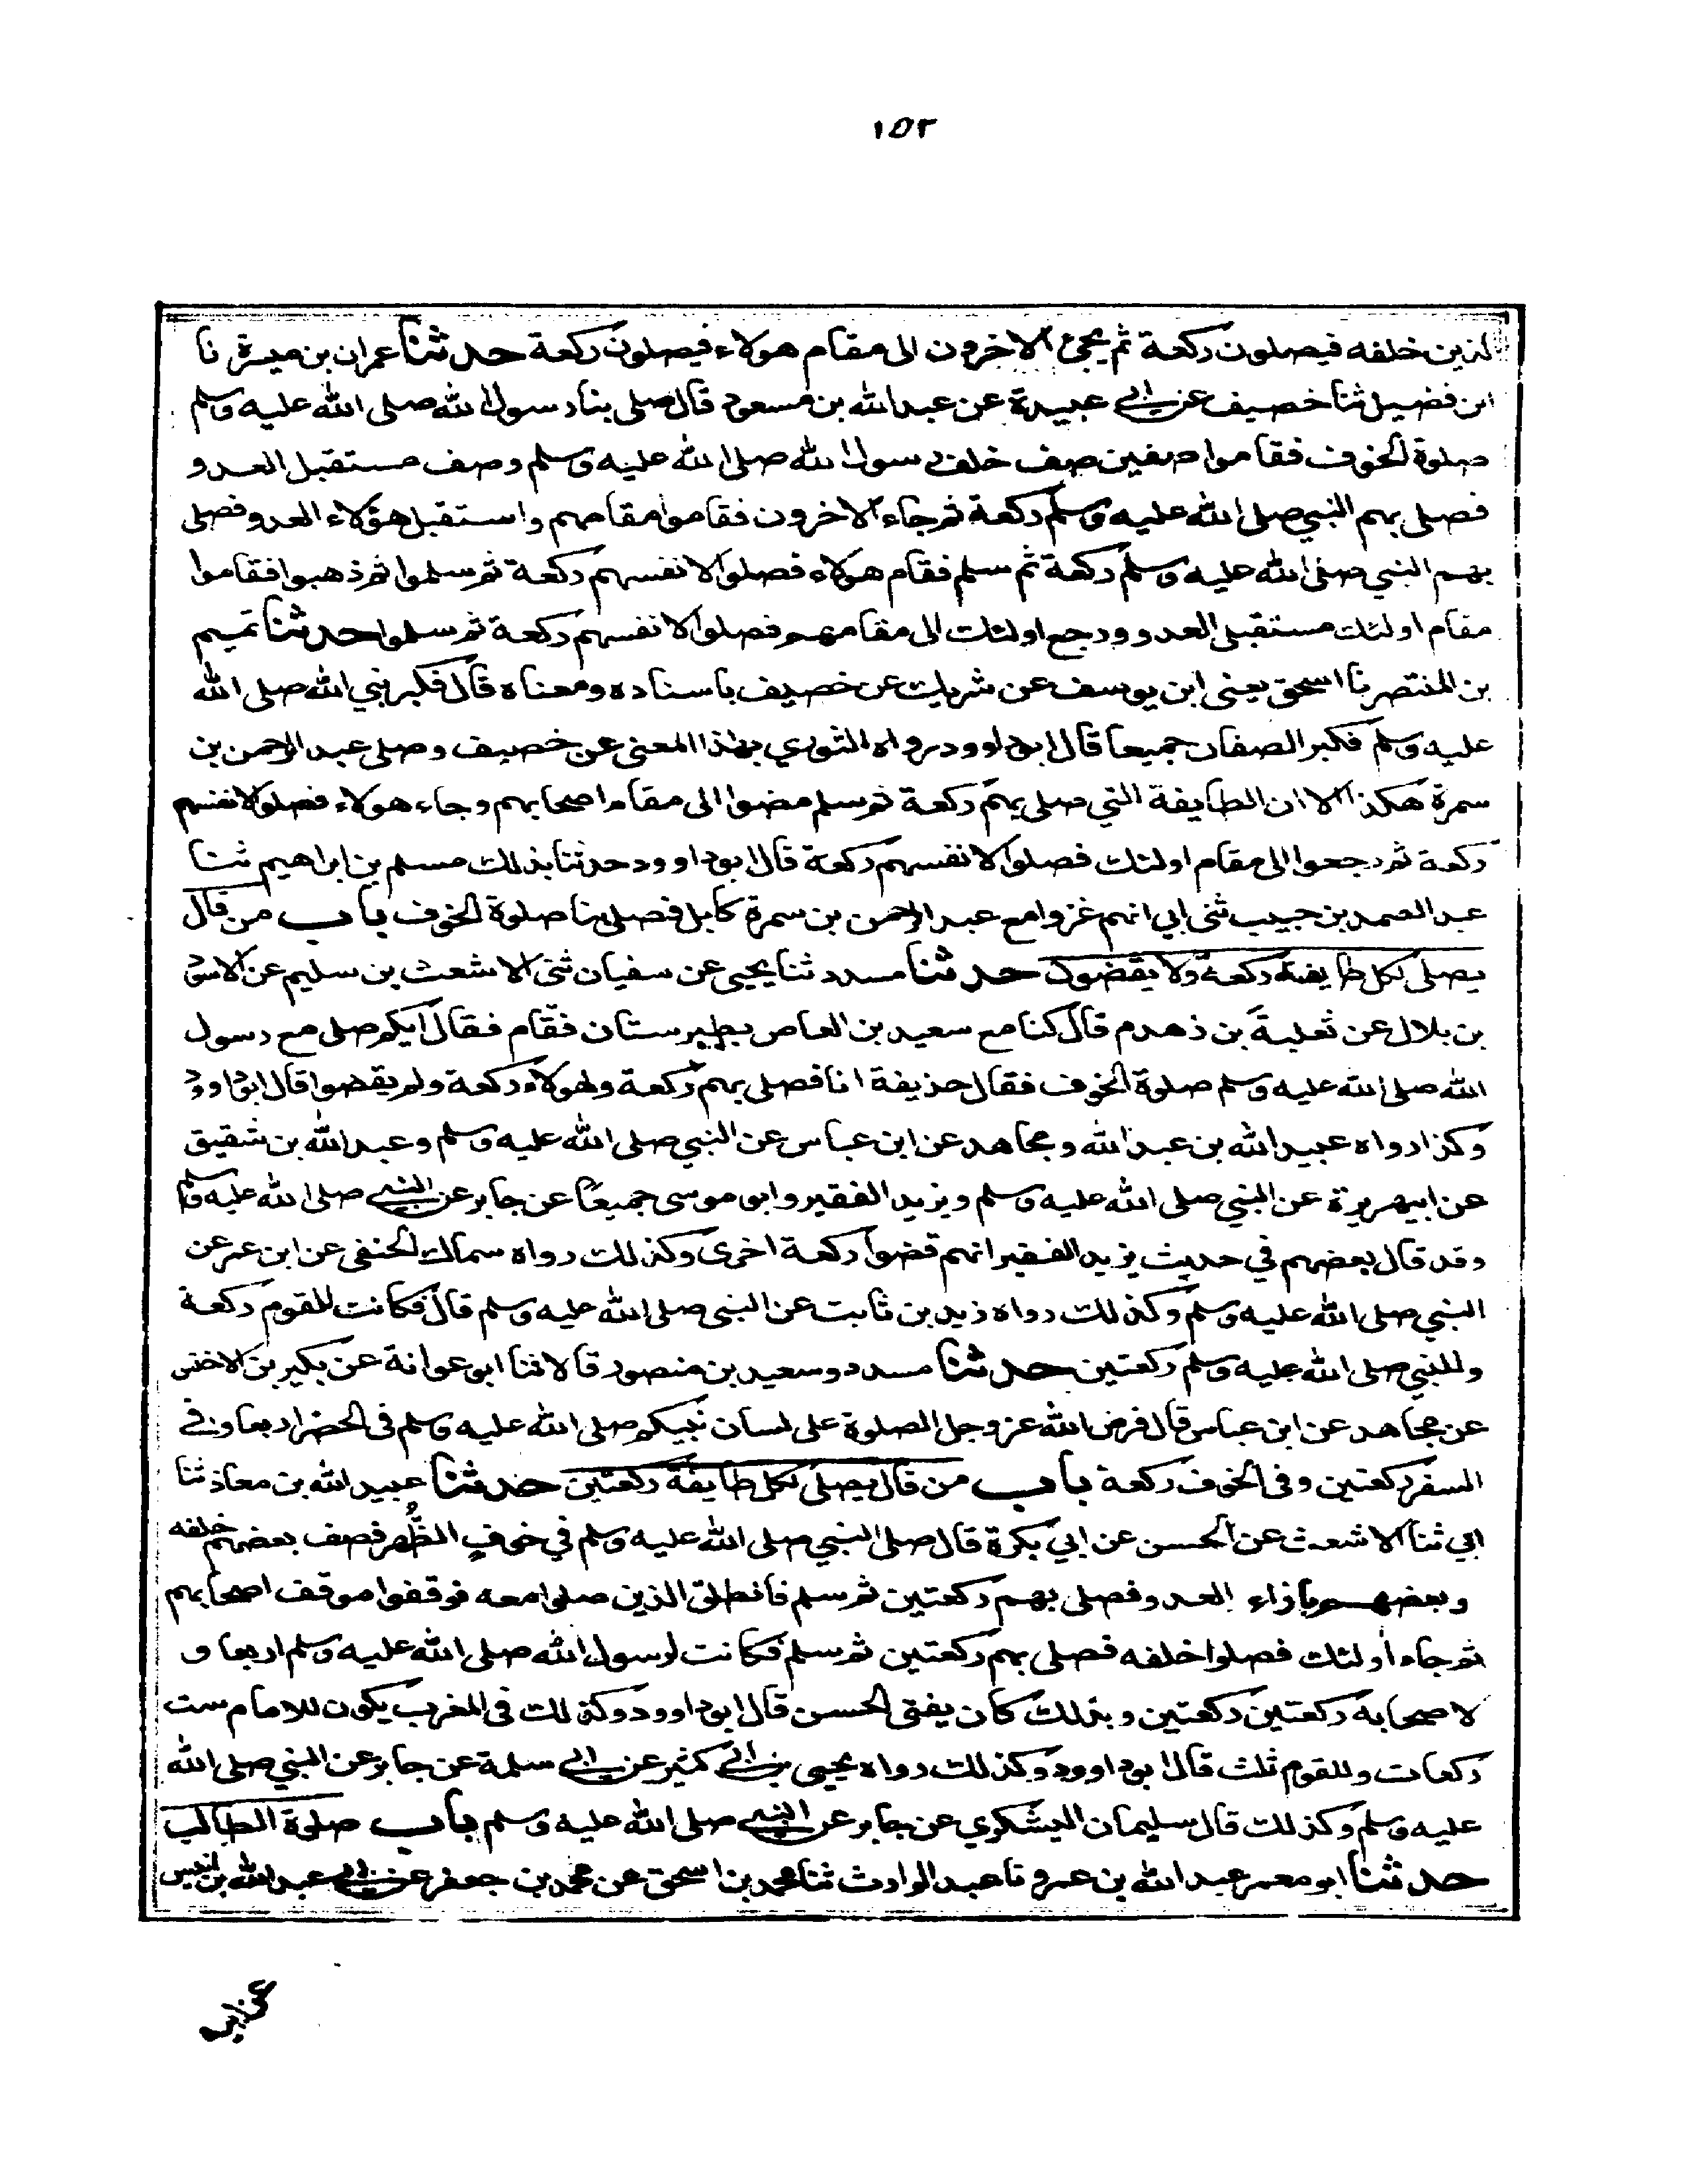 ١٥٢
لذين خلفه فيصلون ركعة ثم يجئ الاخرون الى مقام هولاء فيصلون ركعة حدثنا عمران بن ميسرة نا
ابن فضيل ثنا خصيف عن ابي عبيدة عن عبد الله بن مسعود قال صلى بنا رسول الله صلى الله عليه وسلم
صلوة الخوف فقاموا صفين صف خلف رسول الله صلى الله عليه وسلم وصف مستقبل العدو
فصلى بهم النبي صلى الله عليه وسلم ركعة ثم جاء الاخرون فقاموا مقامهم واستقبل هؤلاء العدو فصلى
بهم النبي صلى الله عليه وسلم ركعة ثم سلم فقام هولاء فصلوا لانفسهم ركعة ثم سلموا ثم ذهبوا فقاموا
مقام اولئك مستقبلى العدو ورجع اولئك الى مقامهم فصلوا لانفسهم ركعة ثم سلموا حدثنا تميم
بن المنتصر نا اسحق يعنى ابن يوسف عن شريك عن خصيف باسناده ومعناه قال فكبر نبي الله صلى الله
عليه وسلم فكبر الصفان جميعا قال ابو داوود رواه الثوري بهذا المعنى عن خصيف وصلى عبد الرحمن بن
سمرة هكذا الا ان الطايفة التي صلى بهم ركعة ثم سلم مضوا الى مقام اصحابهم وجاء هولاء فصلوا لانفسهم
ركعة ثم رجعوا الى مقام اولئك فصلوا لانفسهم ركعة قال ابو داوود حدثنا بذلك مسلم بن ابراهيم ثنا
عبد الصمد بن حبيب ثنى ابي انهم غزوا مع عبد الرحمن بن سمرة كابل فصلى بنا صلوة الخوف باب من قال
يصلى لكل طايفة ركعة ولا يقضون حدثنا مسدد ثنا يحيى عن سفيان ثنى الاشعث بن سليم عن الاسود
بن بلال عن ثعلبة بن زهدم قال كنا مع سعيد بن العاص بطبرستان فقام فقال ايكم صلى مع رسول
الله صلى الله عليه وسلم صلوة الخوف فقال حذيفة انا فصلى بهم ركعة ولهولاء ركعة ولم يقضوا قال ابو داوود
وكذا رواه عبيد الله بن عبد الله ومجاهد عن ابن عباس عن النبي صلى الله عليه وسلم وعبد الله بن شقيق
عن ابيهريرة عن النبي صلى الله عليه وسلم ويزيد الفقير وابو موسى جميعا عن جابر عن النبي صلى الله عليه وسلم
وقد قال بعضهم في حديث يزيد الفقير انهم قضوا ركعة اخرى وكذلك رواه سماك الحنفى عن ابن عمر عن
النبي صلى الله عليه وسلم وكذلك رواه زيد بن ثابت عن النبي صلى الله عليه وسلم قال فكانت للقوم ركعة
وللنبي صلى الله عليه وسلم ركعتين حدثنا مسدد وسعيد بن منصور قالا ثنا ابو عوانة عن بكير بن الاخنس
عن مجاهد عن ابن عباس قال فرض الله عز وجل الصلوة على لسان نبيكم صلى الله عليه وسلم فى الحضر اربعا وفي
السفر ركعتين وفى الخوف ركعة باب من قال يصلى لكل طايفة ركعتين حدثنا عبيد الله بن معاذ ثنا
ابي ثنا الاشعث عن الحسن عن ابي بكرة قال صلى النبي صلى الله عليه وسلم في خوفٍ الظُّهر فصف بعضهم خلفه
وبعضهم بازاء العدو فصلى بهم ركعتين ثم سلم فانطلق الذين صلوا معه فوقفوا موقف اصحابهم
ثم جاء اولئك فصلوا خلفه فصلى بهم ركعتين ثم سلم فكانت لرسول الله صلى الله عليه وسلم اربعا و
لاصحابه ركعتين ركعتين وبذلك كان يفتى الحسن قال ابو داوود وكذلك فى المغرب يكون للامام ست
ركعات وللقوم ثلث قال ابو داوود وكذلك رواه يحيى بن ابي كثير عن ابي سلمة عن جابر عن النبي صلى الله
عليه وسلم وكذلك قال سليمان اليشكري عن جابر عن النبي صلى الله عليه وسلم باب صلوة الطالب
حدثنا ابو معمر عبد الله بن عمرو نا عبد الوارث ثنا محمد بن اسحق عن محمد بن جعفر عن ابن عبد الله بن انيس
عن ابيه